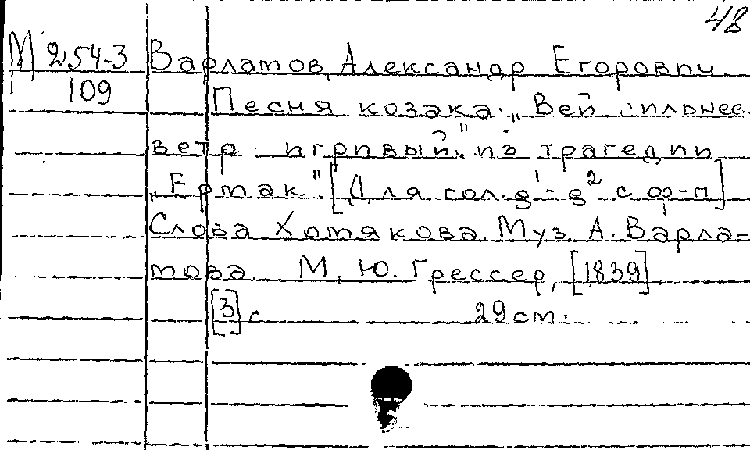 48
М 254-3 Варламов, Александр Егорович
109 Песня козака: „Вей сильнее
ветр игривый", из трагедии
„Ермак" [Для гол. g¹-g² с ф-п]
Слова Хомякова. Муз. А. Варла-
мова. М, Ю. Грессер, [1839]
[3] с. 29 см.